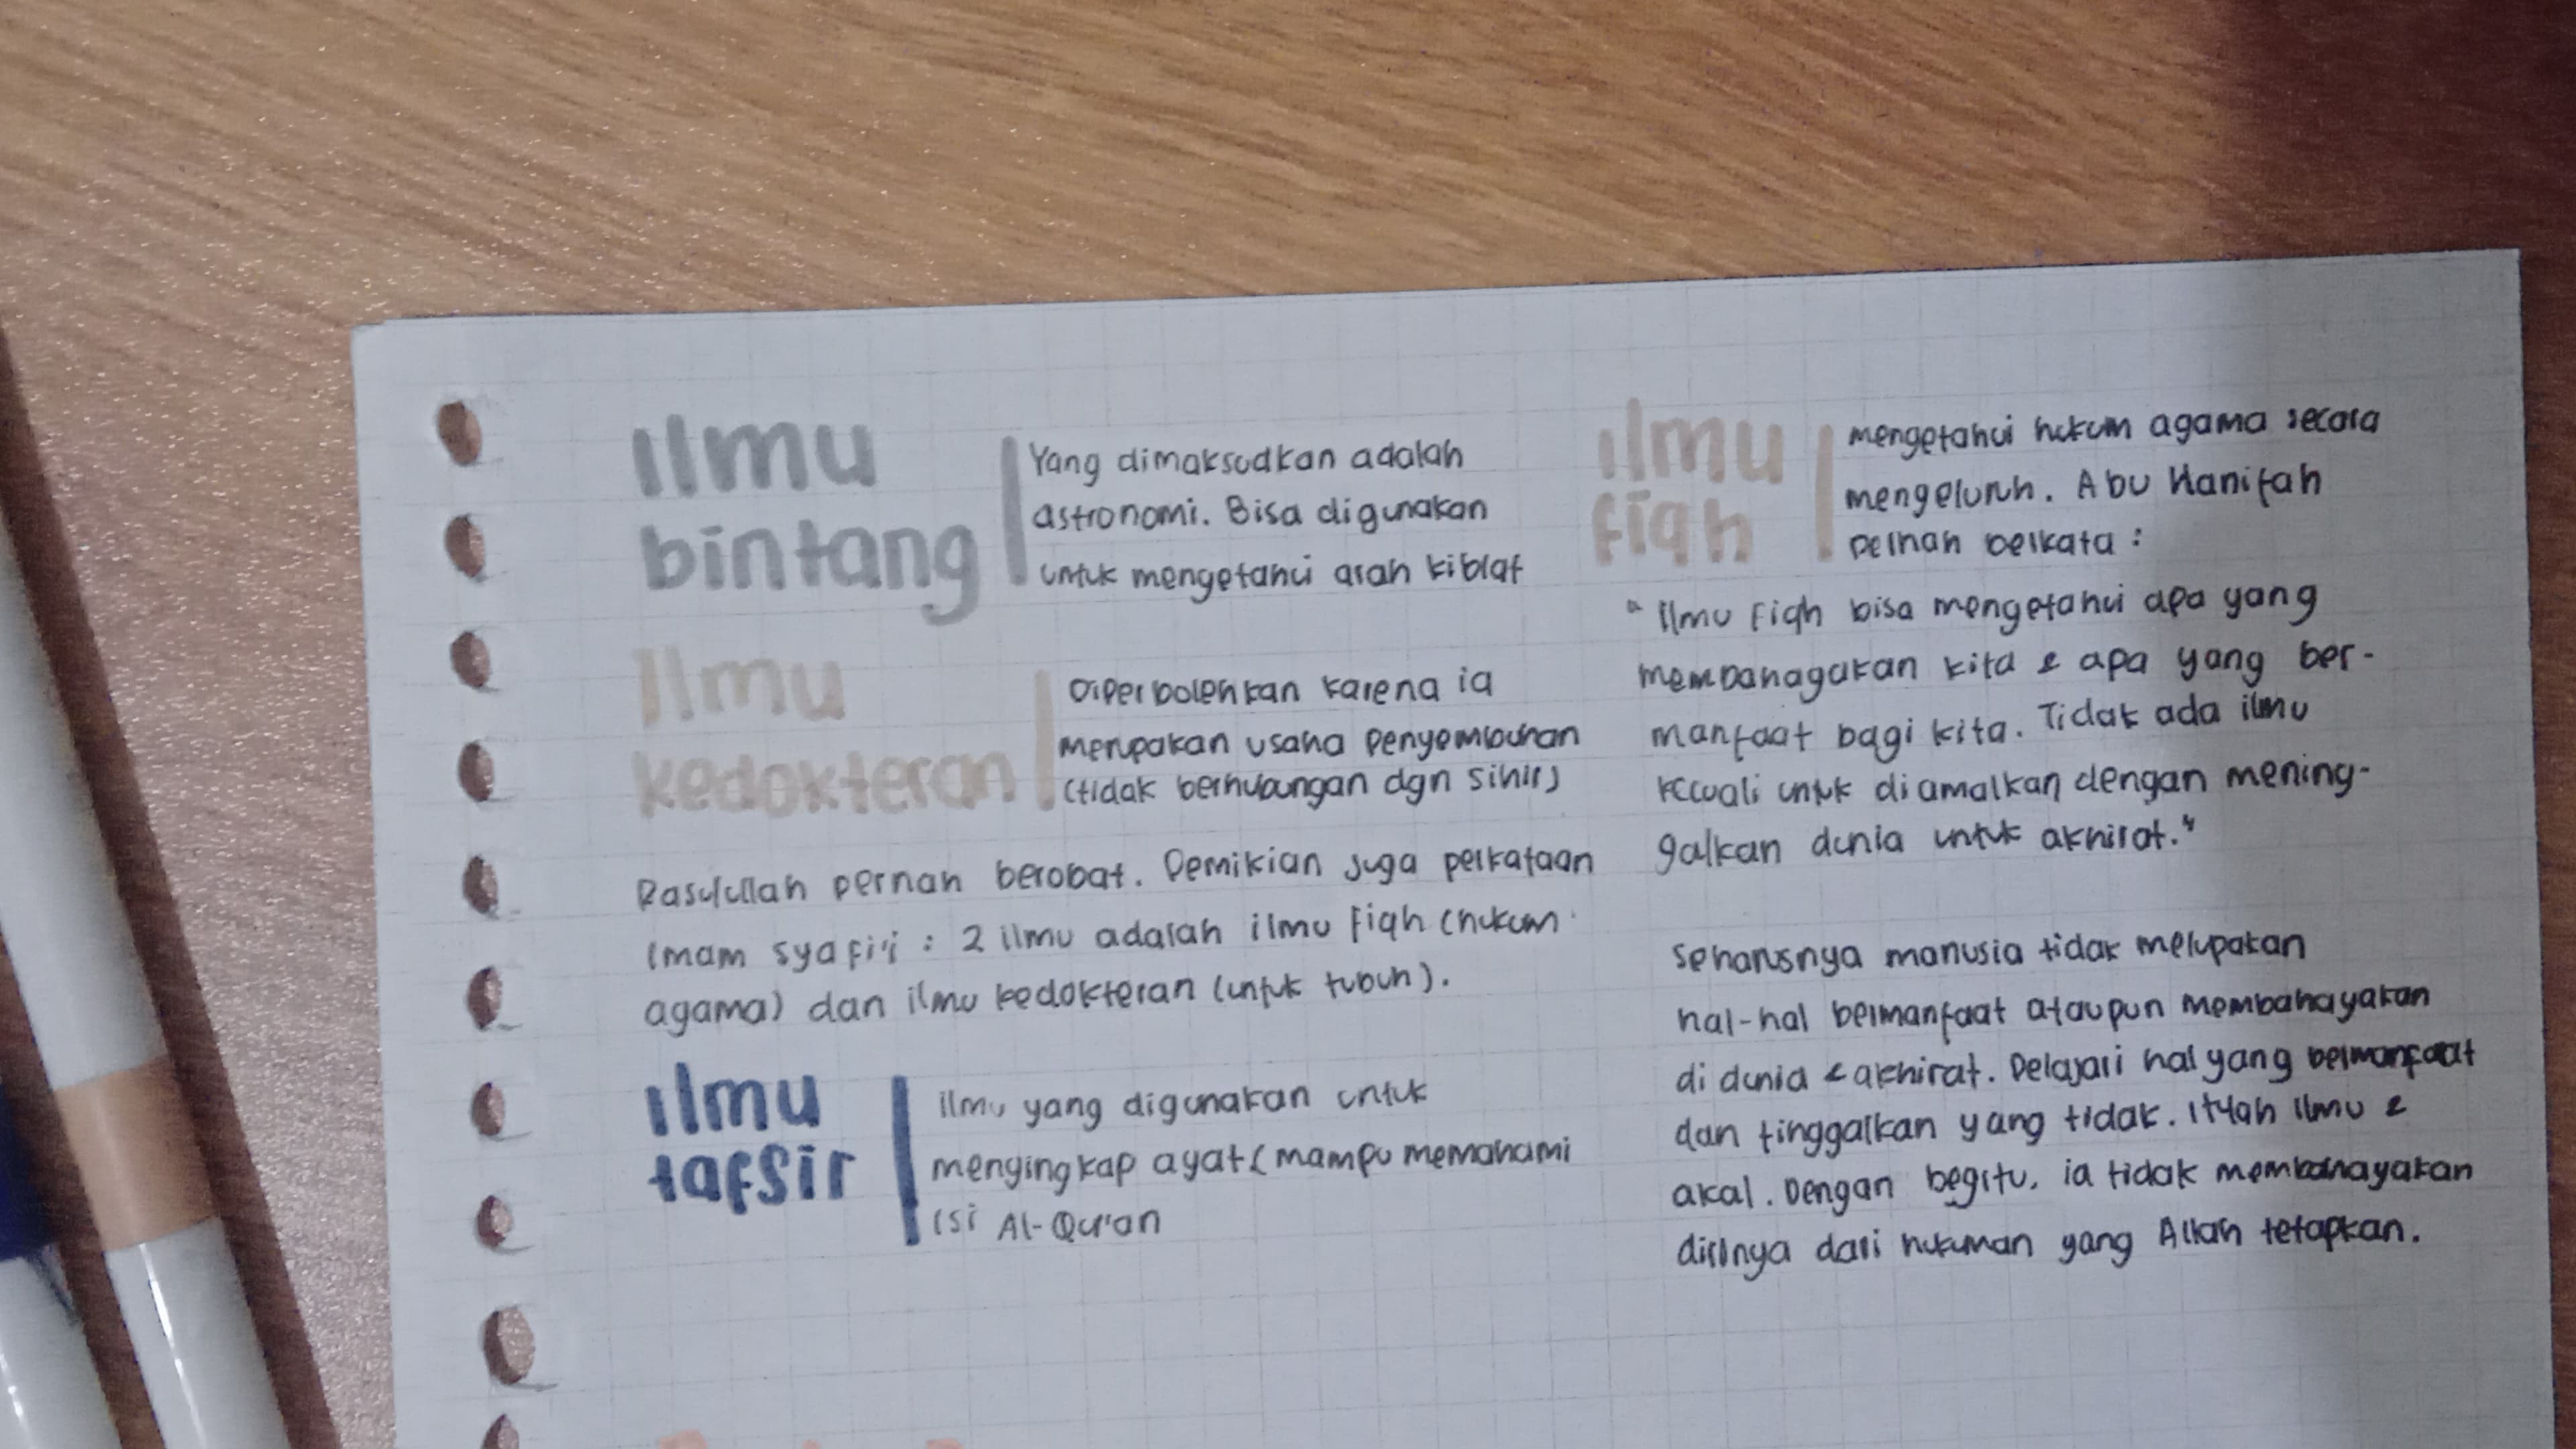 Ilmu
bintang
Yang dimaksudkan adalah
astronomi. Bisa digunakan
untuk mengetahui arah kiblat
Ilmu
kedokteran
Diperbolehkan karena ia
merupakan usaha penyembuhan
(tidak berhubungan dgn sihir)
Rasulullah pernah berobat. Demikian juga perkataan
Imam syafi'i : 2 ilmu adalah ilmu fiqh (hukum
agama) dan ilmu kedokteran (untuk tubuh).
ilmu
tafsir
ilmu yang digunakan untuk
menyingkap ayat (mampu memahami
isi Al-Qur'an
ilmu
fiqh
mengetahui hukum agama secara
mengeluruh. Abu Hanifah
pernah berkata :
"Ilmu Fiqh bisa mengetahui apa yang
membahagakan kita & apa yang ber-
manfaat bagi kita. Tidak ada ilmu
kecuali untuk diamalkan dengan mening-
galkan dunia untuk akhirat."
Seharusnya manusia tidak melupakan
hal-hal bermanfaat ataupun membahayakan
di dunia & akhirat. Pelajari hal yang bermanfaat
dan tinggalkan yang tidak. Itulah ilmu &
akal. Dengan begitu, ia tidak membahayakan
dirinya dari hukuman yang Allah tetapkan.